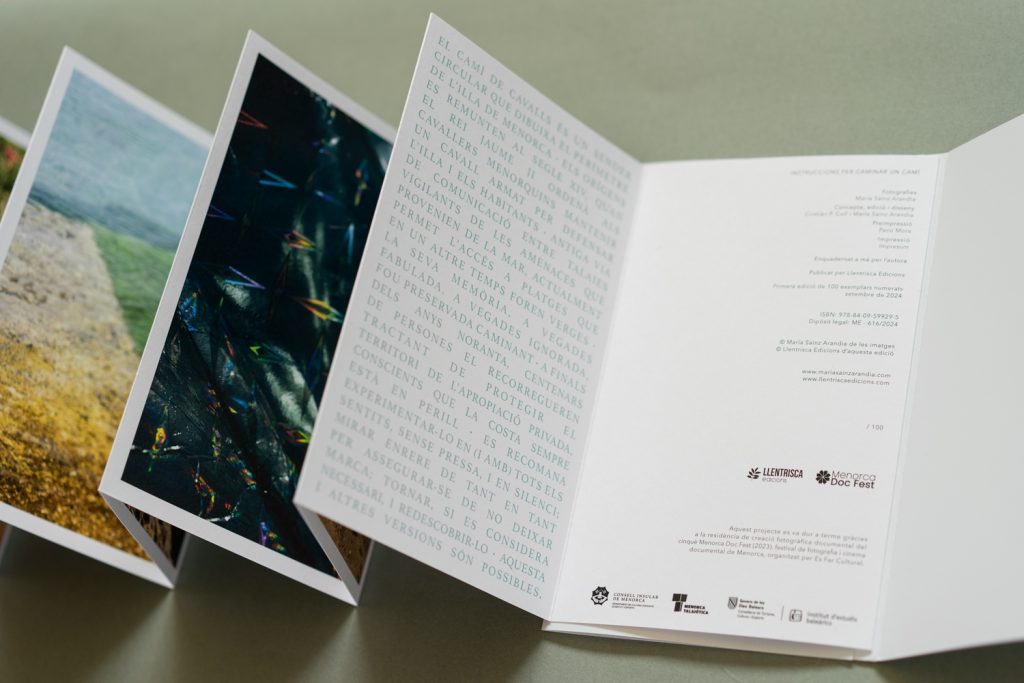 EL CAMÍ DE CAVALLS ÉS UN SENDER
CIRCULAR QUE DIBUIXA EL PERÍMETRE
DE L'ILLA DE MENORCA · ELS ORÍGENS
ES REMUNTEN AL SEGLE XIV, QUAN
EL REI JAUME II ORDENA ALS
CAVALLERS MENORQUINS MANTENIR
UN CAVALL ARMAT PER DEFENSAR
L'ILLA I ELS HABITANTS · ANTIGA VIA
DE COMUNICACIÓ ENTRE TALAIES
VIGILANTS DE LES AMENACES QUE
PROVENIEN DE LA MAR, ACTUALMENT
PERMET L'ACCÉS A PLATGES QUE
EN UN ALTRE TEMPS FOREN VERGES ·
LA SEVA MEMÒRIA, A VEGADES
FABULADA, A VEGADES IGNORADA,
FOU PRESERVADA CAMINANT · A FINALS
DELS ANYS NORANTA, CENTENARS
DE PERSONES EL RECORREGUEREN
TRACTANT DE PROTEGIR EL
TERRITORI DE L'APROPIACIÓ PRIVADA,
CONSCIENTS QUE LA COSTA SEMPRE
ESTÀ EN PERILL · ES RECOMANA
EXPERIMENTAR-LO EN (I AMB) TOTS ELS
SENTITS, SENSE PRESSA, I EN SILENCI;
MIRAR ENRERE DE TANT EN TANT
PER ASSEGURAR-SE DE NO DEIXAR
MARCA; TORNAR, SI ES CONSIDERA
NECESSARI, I REDESCOBRIR-LO · AQUESTA
I ALTRES VERSIONS SÓN POSSIBLES.
INSTRUCCIONS PER CAMINAR UN CAMÍ
Fotografies
María Sainz Arandia
Concepte, edició i disseny
Cristian P. Coll i María Sainz Arandia
Preimpressió
Paco Mora
Impressió
Impresum
Enquadernat a mà per l'autora
Publicat per Llentrisca Edicions
Primera edició de 100 exemplars numerats
setembre de 2024
ISBN: 978-84-09-59929-5
Dipòsit legal: ME - 616/2024
© María Sainz Arandia de les imatges
© Llentrisca Edicions d'aquesta edició
www.mariasainzarandia.com
www.llentriscaedicions.com
/ 100
LLENTRISCA
edicions
Menorca
Doc Fest
Aquest projecte es va dur a terme gràcies
a la residència de creació fotogràfica documental del
cinquè Menorca Doc Fest (2023), festival de fotografia i cinema
documental de Menorca, organitzat per Es Far Cultural.
CONSELL INSULAR
DE MENORCA
MENORCA
TALAIÒTICA
Govern de les
Illes Balears
Institut d'estudis
baleàrics